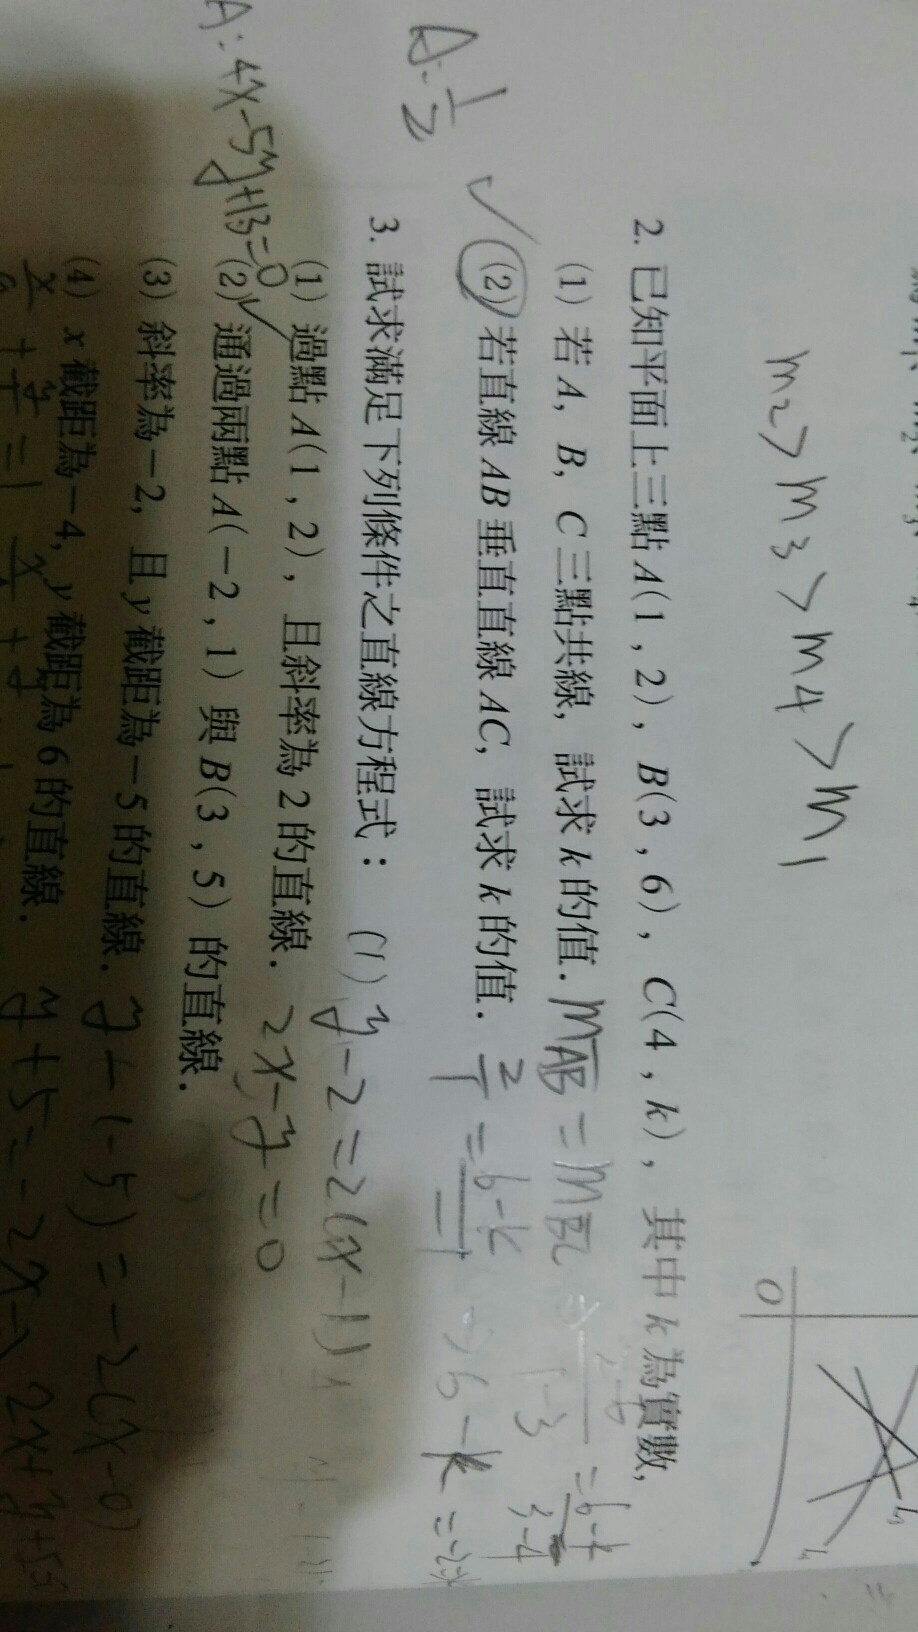 m2 > m3 > m4 > m1
2. 已知平面上三點 A(1 , 2), B(3 , 6), C(4 , k), 其中 k 為實數,
(1) 若 A, B, C 三點共線, 試求 k 的值. m AB = m BC
2-6 / 1-3 = 6-k / 3-4
(2) 若直線 AB 垂直直線 AC, 試求 k 的值. 2/1 = 6-k / -1 → 6-k = -2
A: 1/2
3. 試求滿足下列條件之直線方程式：
(1) y-2=2(x-1)
(1) 過點 A(1 , 2), 且斜率為 2 的直線. 2x-y=0
(2) 通過兩點 A(-2 , 1) 與 B(3 , 5) 的直線.
A: 4x-5y+13=0
(3) 斜率為-2, 且 y 截距為-5 的直線. y-(-5)=-2(x-0)
y+5=-2x
(4) x 截距為-4, y 截距為 6 的直線.